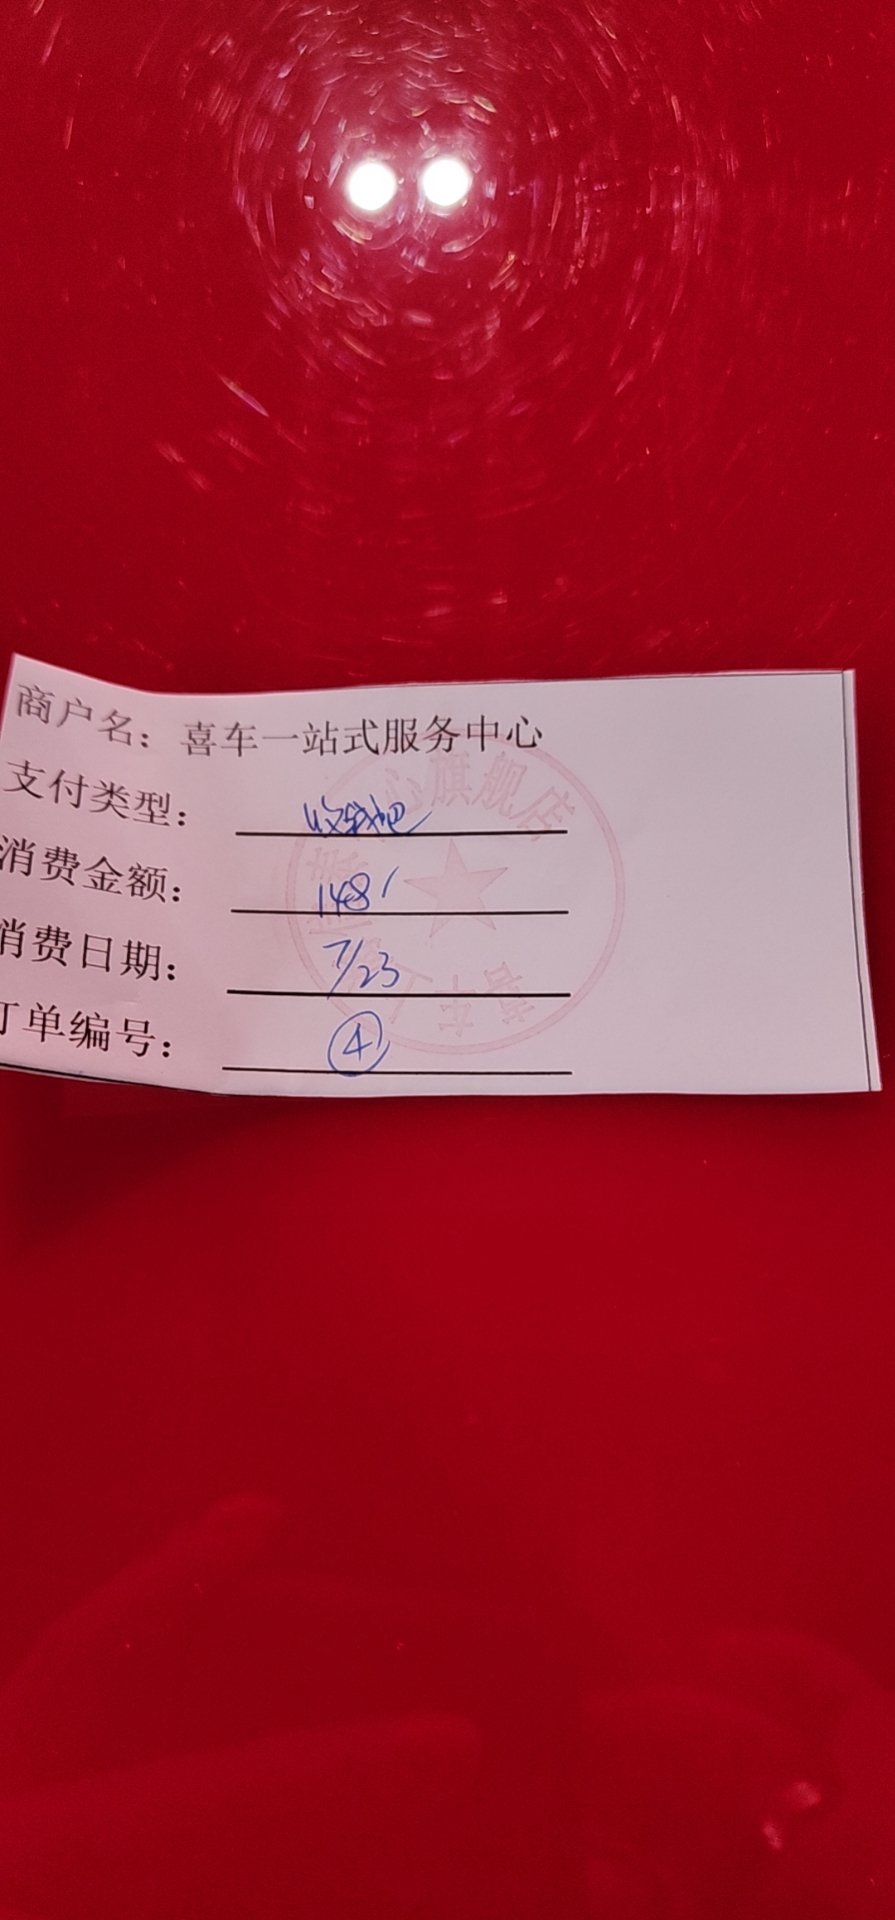 商户名：喜车一站式服务中心
支付类型：收钱吧
消费金额：148
消费日期：7/23
订单编号：④
心旗舰店
喜车